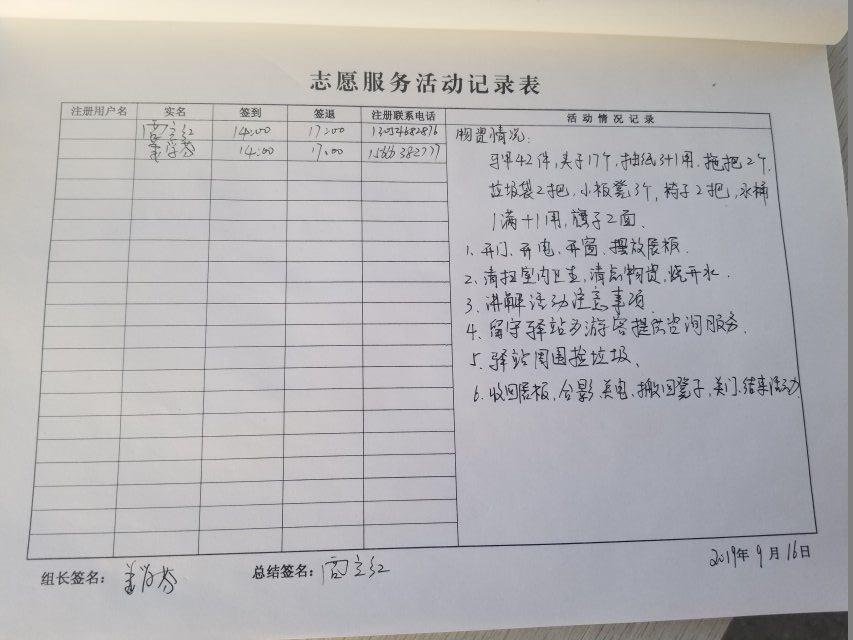 志愿服务活动记录表
注册用户名 实名 签到 签退 注册联系电话 活动情况记录
14:00 17:00
14:00 17:00
物资情况:
马甲42件,夹子17个,抽纸3+1用.拖把2个
垃圾袋2把,小板凳3个,椅子2把,水桶
1满+1用,旗子2面.
1、开门、开电、开窗、摆放展板.
2、清扫室内卫生,清点物资,烧开水.
3、讲解活动注意事项
4、留守驿站为游客提供咨询服务.
5、驿站周围捡垃圾、
6、收回展板,合影、关电、搬回凳子,关门.结束活动
组长签名: 总结签名:
2019年9月16日